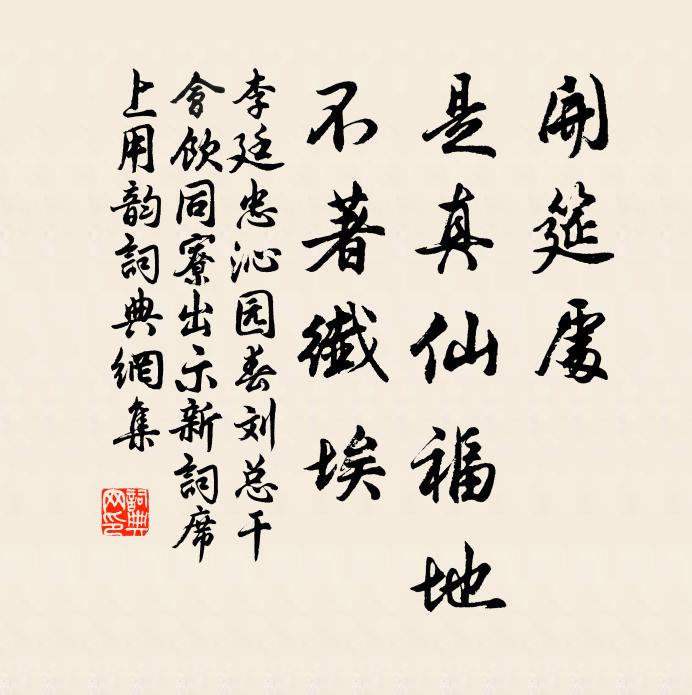 開筵處
是真仙福地
不著纖埃
李廷忠沁园春刘总干
會飲同寮出示新詞席
上用韵詞典網集
詞典网印